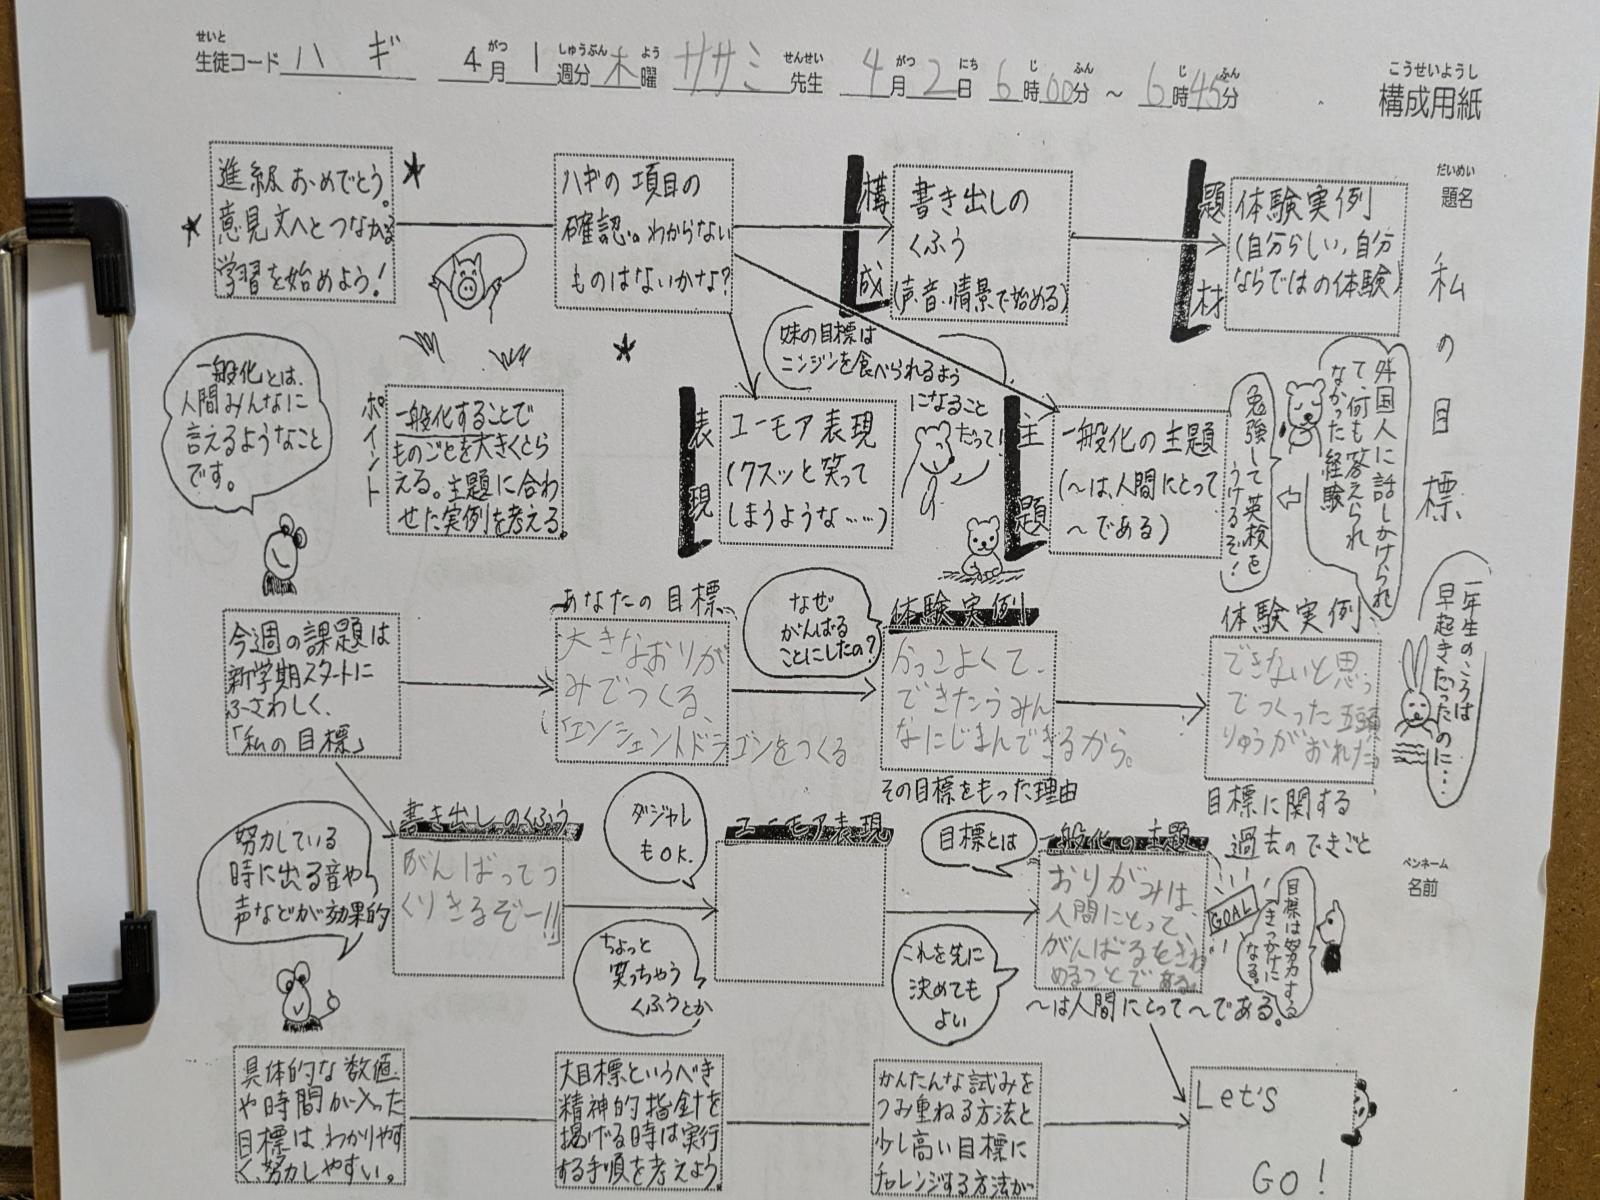 せいと
生徒コード ハギ 4月1週分 木曜 ササミ 先生 4月2日 6時00分 ~ 6時45分
がつ しゅうぶん よう せんせい がつ にち じ ふん じ ふん
こうせいようし
構成用紙
だいめい
題名
私の目標
進級おめでとう。
意見文へとつながる
学習を始めよう!
ハギの項目の
確認。わからない
ものはないかな?
構成
書き出しの
くふう
(声、音、情景で始める)
題材
体験実例
(自分らしい、自分
ならではの体験)
一般化とは、
人間みんなに
言えるようなこと
です。
ポイント
一般化することで
ものごとを大きくとら
える。主題に合わ
せた実例を考える。
表現
ユーモア表現
(クスッと笑って
しまうような……)
妹の目標は
ニンジンを食べられるよう
になること
だって!
主題
一般化の主題
(~は、人間にとって
~である)
外国人に話しかけられ
て、何も答えられ
なかった経験
勉強して英検を
うけるぞ!
今週の課題は
新学期スタートに
ふさわしく、
「私の目標」
あなたの目標
大きなおりが
みでつくる、
「エンシェントドラゴンをつくる
なぜ
がんばる
ことにしたの?
体験実例
かっこよくて、
できたらみん
なにじまんできるから。
その目標をもった理由
体験実例
できないと思っ
てつくった五頭
りゅうがおれた。
目標に関する
過去のできごと
一年生のころは
早起きだったのに…
努力している
時に出る音や
声などが効果的
書き出しのくふう
がんばってつ
くりきるぞー!!
ダジャレ
もOK.
ちょっと
笑っちゃう
くふうとか
ユーモア表現
目標とは
これを先に
決めても
よい
一般化の主題
おりがみは、
人間にとって、
がんばるをきわ
めることである。
~は人間にとって~である。
GOAL
目標は努力する
きっかけに
なる。
ペンネーム
名前
具体的な数値
や時間が入った
目標は、わかりやす
く、努力しやすい。
大目標というべき
精神的指針を
掲げる時は実行
する手順を考えよう
かんたんな試みを
つみ重ねる方法と
少し高い目標に
チャレンジする方法が
Let's
GO!